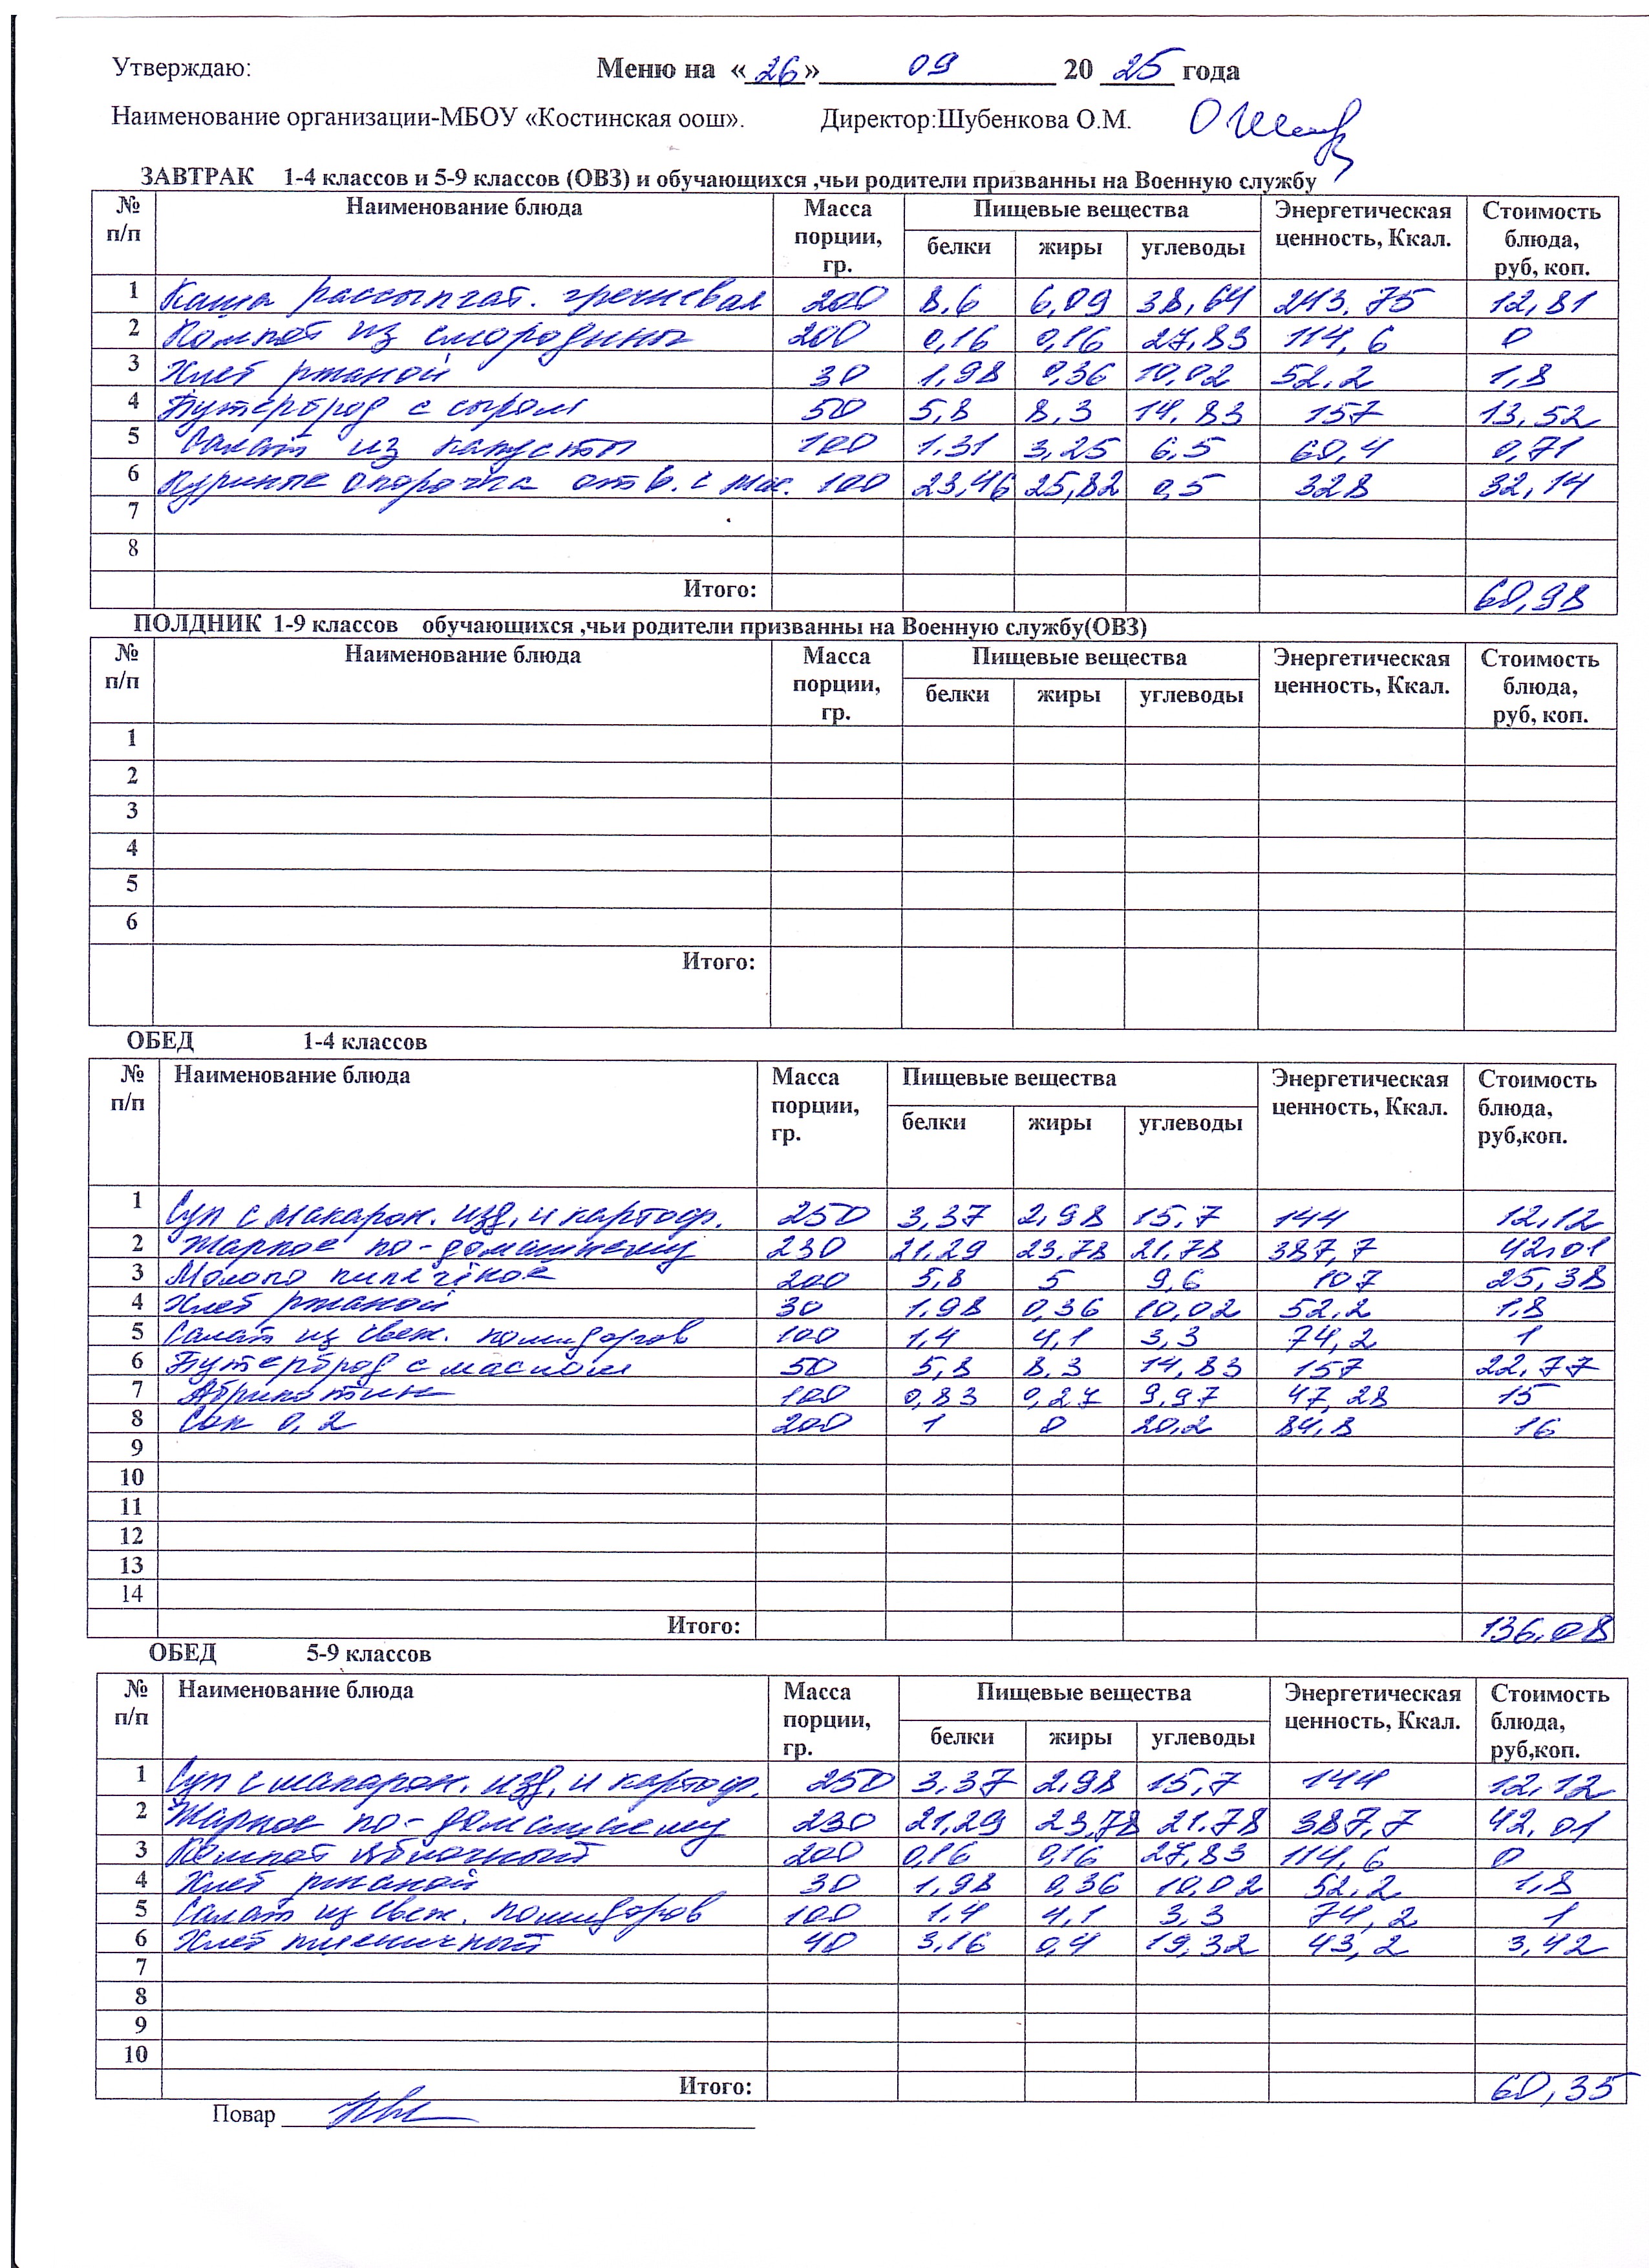 Утверждаю: Меню на «26» 09 2025 года
Наименование организации-МБОУ «Костинская оош». Директор:Шубенкова О.М.
ЗАВТРАК 1-4 классов и 5-9 классов (ОВЗ) и обучающихся ,чьи родители призванны на Военную службу
№ п/п Наименование блюда Масса порции, гр. Пищевые вещества Энергетическая ценность, Ккал. Стоимость блюда, руб, коп.
белки жиры углеводы
1 Каша рассыпчат. гречневая 200 8.6 6,09 38,64 243.75 12,81
2 Компот из смородины 200 0,16 0,16 27,83 114,6 0
3 Хлеб ржаной 30 1,98 0,36 10,02 52.2 1,8
4 Бутерброд с сыром 50 5,8 8,3 14,83 157 13,52
5 Салат из капусты 100 1.31 3,25 6,5 60,4 0,71
6 Куриные окорочка отв. с мас. 100 23,46 25,82 0,5 328 32,14
7
8
Итого: 60,98
ПОЛДНИК 1-9 классов обучающихся ,чьи родители призванны на Военную службу(ОВЗ)
№ п/п Наименование блюда Масса порции, гр. Пищевые вещества Энергетическая ценность, Ккал. Стоимость блюда, руб, коп.
белки жиры углеводы
1
2
3
4
5
6
Итого:
ОБЕД 1-4 классов
№ п/п Наименование блюда Масса порции, гр. Пищевые вещества Энергетическая ценность, Ккал. Стоимость блюда, руб,коп.
белки жиры углеводы
1 Суп с макарон. изд. и картоф. 250 3,37 2,98 15,7 144 12,12
2 Жаркое по-домашнему 230 21,29 23,78 21,78 387,7 42,01
3 Молоко кипячёное 200 5,8 5 9,6 107 25,38
4 Хлеб ржаной 30 1,98 0,36 10,02 52,2 1,8
5 Салат из свеж. помидоров 100 1,4 4,1 3,3 74,2 1
6 Бутерброд с маслом 50 5,8 8.3 14,83 157 22,77
7 Абрикотин 100 0,83 0,27 9,97 47,28 15
8 Сок 0,2 200 1 0 20,2 84,8 16
9
10
11
12
13
14
Итого: 136,08
ОБЕД 5-9 классов
№ п/п Наименование блюда Масса порции, гр. Пищевые вещества Энергетическая ценность, Ккал. Стоимость блюда, руб,коп.
белки жиры углеводы
1 Суп с макарон. изд. и картоф. 250 3,37 2,98 15,7 144 12,12
2 Жаркое по-домашнему 230 21,29 23,78 21.78 387,7 42,01
3 Компот яблочный 200 0,16 0,16 27,83 114,6 0
4 Хлеб ржаной 30 1,98 0,36 10,02 52,2 1,8
5 Салат из свеж. помидоров 100 1,4 4,1 3,3 74,2 1
6 Хлеб пшеничный 40 3,16 0,4 19,32 43,2 3,42
7
8
9
10
Итого: 60,35
Повар